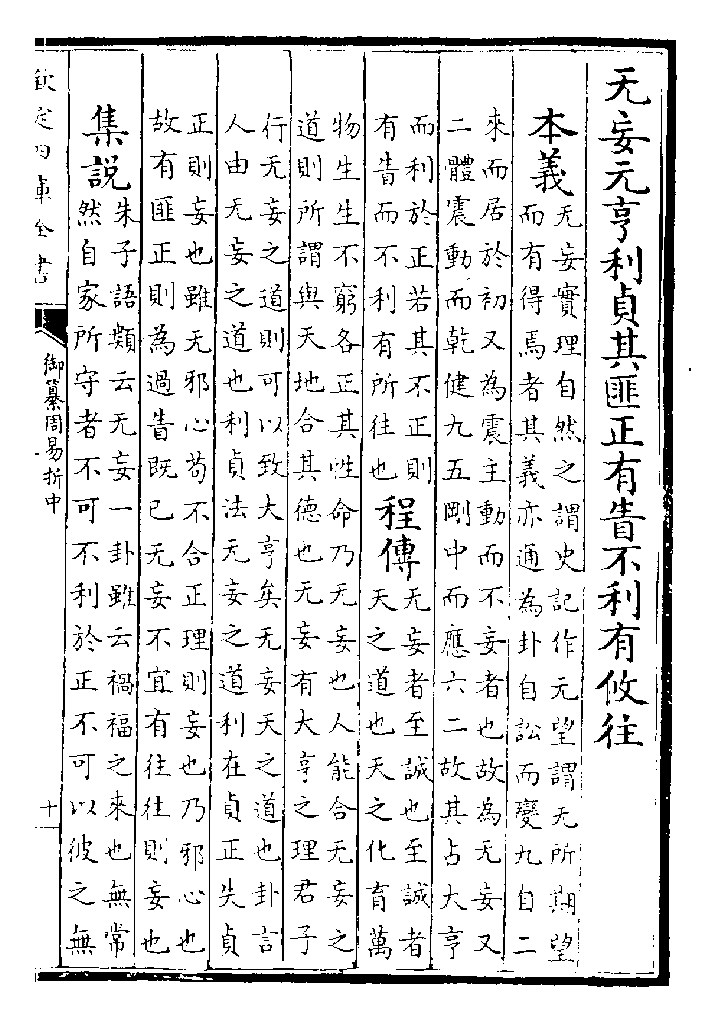 无妄元亨利貞其匪正有眚不利有攸往
本義
无妄實理自然之謂史記作无望謂无所期望
而有得焉者其義亦通為卦自訟而變九自二
來而居於初又為震主動而不妄者也故為无妄又
二體震動而乾健九五剛中而應六二故其占大亨
而利於正若其不正則
有眚而不利有所往也
程傳
无妄者至誠也至誠者
天之道也天之化育萬
物生生不窮各正其性命乃无妄也人能合无妄之
道則所謂與天地合其德也无妄有大亨之理君子
行无妄之道則可以致大亨矣无妄天之道也卦言
人由无妄之道也利貞法无妄之道利在貞正失貞
正則妄也雖无邪心苟不合正理則妄也乃邪心也
故有匪正則為過眚既已无妄不宜有往往則妄也
集說
朱子語類云无妄一卦雖云禍福之來也無常
然自家所守者不可不利於正不可以彼之無
欽定四庫全書
御纂周易折中
十